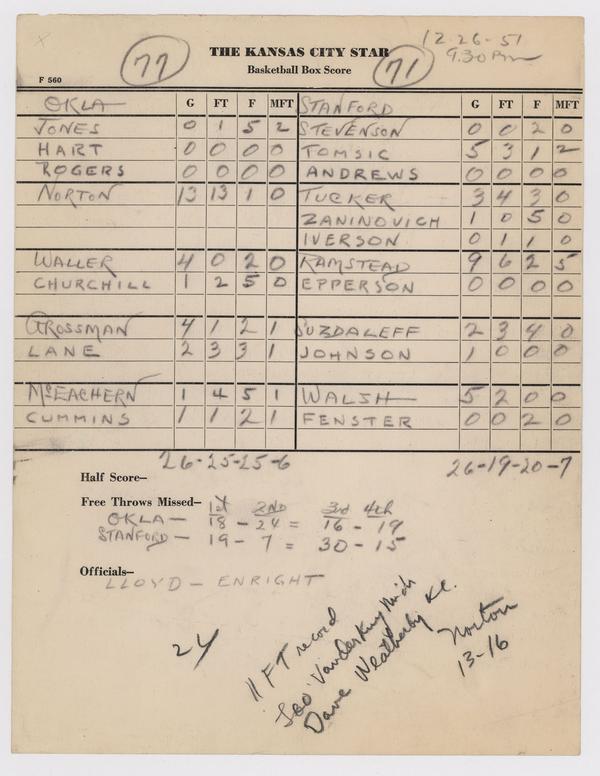 12-26-51
9:30 Pm
77 THE KANSAS CITY STAR 71
Basketball Box Score
F 560
OKLA G FT F MFT STANFORD G FT F MFT
JONES 0 1 5 2 STEVENSON 0 0 2 0
HART 0 0 0 0 TOMSIC 5 3 1 2
ROGERS 0 0 0 0 ANDREWS 0 0 0 0
NORTON 13 13 1 0 TUCKER 3 4 3 0
ZANINOVICH 1 0 5 0
IVERSON 0 1 1 0
WALLER 4 0 2 0 RAMSTEAD 9 6 2 5
CHURCHILL 1 2 5 0 EPPERSON 0 0 0 0
GROSSMAN 4 1 2 1 SUZDALEFF 2 3 4 0
LANE 2 3 3 1 JOHNSON 1 0 0 0
McEACHERN 1 4 5 1 WALSH 5 2 0 0
CUMMINS 1 1 2 1 FENSTER 0 0 2 0
26-25-25-6 26-19-20-7
Half Score—
Free Throws Missed— 1st 2ND 3rd 4th
OKLA — 18 - 24 = 16 - 19
STANFORD — 19 - 7 = 30 - 15
Officials—
LLOYD — ENRIGHT
24
11 FT record
Leo VanderKuy Mich
Dave Weatherby K.C.
Norton
13-16